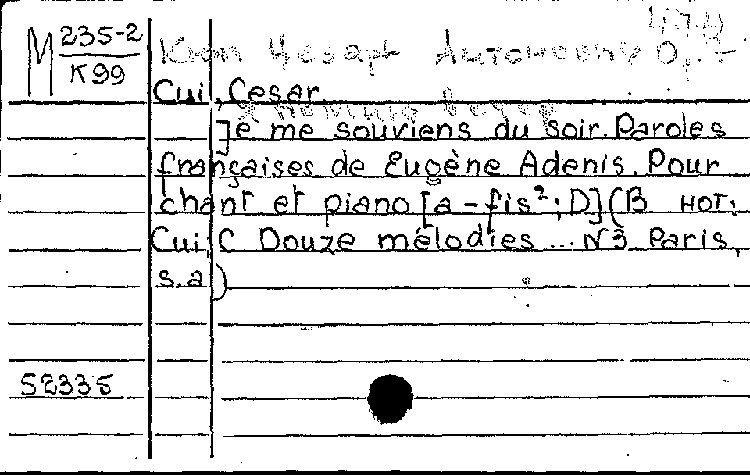 М 235-2
К 99
Кюи Цезарь Антонович Ор.
Cui, Cesar.
Je me souviens du soir. Paroles
françaises de Eugène Adenis. Pour
chant et piano [a-fis²; D] (В нот:
Cui, C Douze mélodies ... N3 Paris,
s.a)
52335